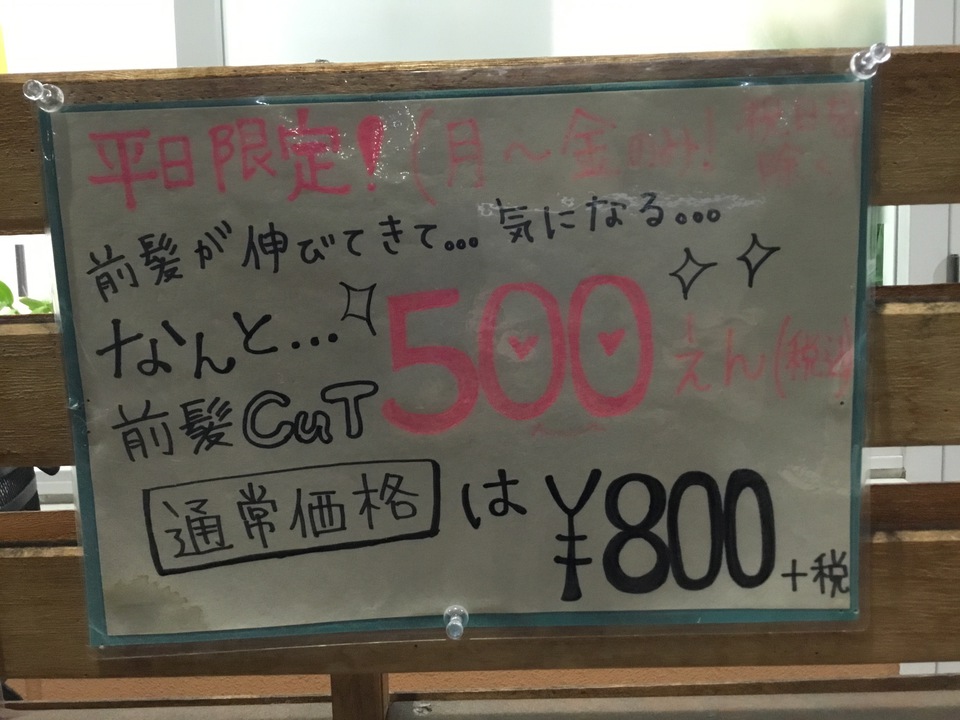 平日限定!(月〜金のみ!
前髪が伸びてきて... 気になる...
なんと... 500えん(税込)
前髪CuT
通常価格 は ¥800+税